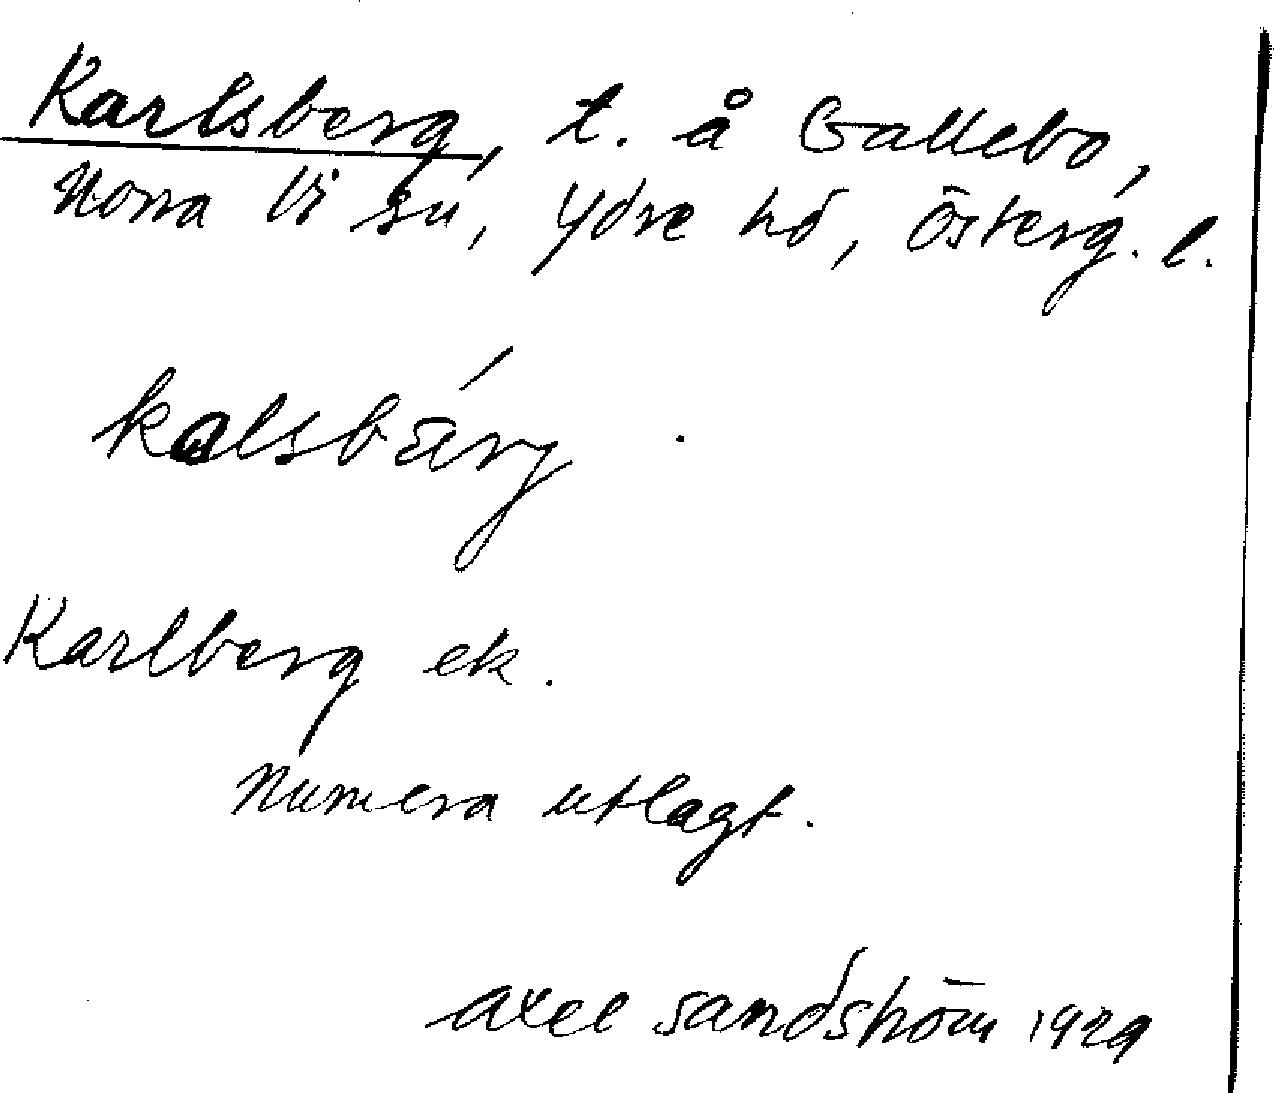 Karlsberg, t. å Gallebo,
Norra Vi sn, Ydre hd, Österg. l.
kalsbärj
Karlberg ek.
Numera utlagt.
Axel Sandström 1929